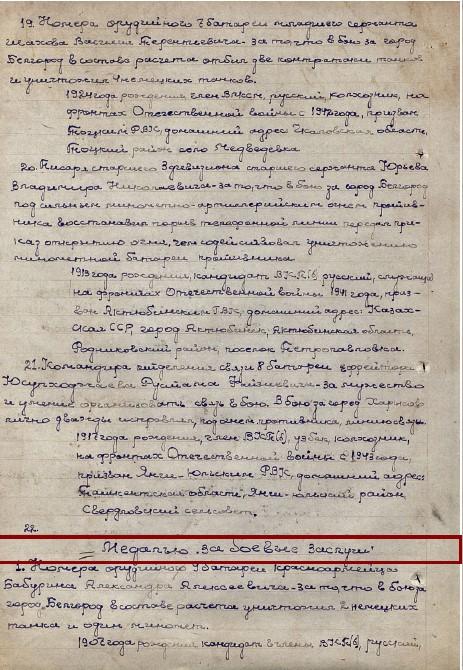 19. Номера орудийного 7 батареи младшего сержанта
Исахова Василия Терентьевича - за то, что в бою за город
Белгород в составе расчета отбил две контратаки танков
и уничтожил 4 немецких танков.
1924 года рождения, член ВЛКСМ, русский, колхозник, на
фронтах Отечественной войны с 1942 года, призван
Тоцким РВК, домашний адрес Чкаловская область,
Тоцкий район село Медведевка
20. Писаря старшего 3 дивизиона старшего сержанта Юрьева
Владимира Николаевича - за то, что в бою за город Белгород
под сильным минометно-артиллерийским огнем против-
ника восстанавил порыв телефонной линии передал при-
каз открытию огня, чем содействовал уничтожению
минометной батареи противника
1913 года рождения, кандидат ВКП(б), русский, служащий
на фронтах Отечественной войны 1941 года, приз-
ван Актюбинским ГВК, домашний адрес: Казах-
ская ССР, город Актюбинск, Актюбинская область,
Родниковский район, поселок Петропавловка.
21. Командира отделения связи 8 батареи ефрейтора
Юсупходжаева Рустама - за мужество
и умение организовать связь в бою. В бою за город Харьков
лично дважды исправлял под огнем противника линию связи.
1917 года рождения, член ВКП(б), узбек, колхозник,
на фронтах Отечественной войны с 1943 года,
призван Янги-Юльским РВК, домашний адрес:
Ташкентской области, Янги-Юльский район
Свердловский сельсовет.
22.
Медалью "За боевые заслуги"
1. Номера орудийного 9 батареи красноармейца
Бабурина Александра Алексеевича - за то что в бою за
город Белгород в составе расчета уничтожил 2 немецких
танка и один миномет.
1902 года рождения кандидат в члены ВКП(б), русский,